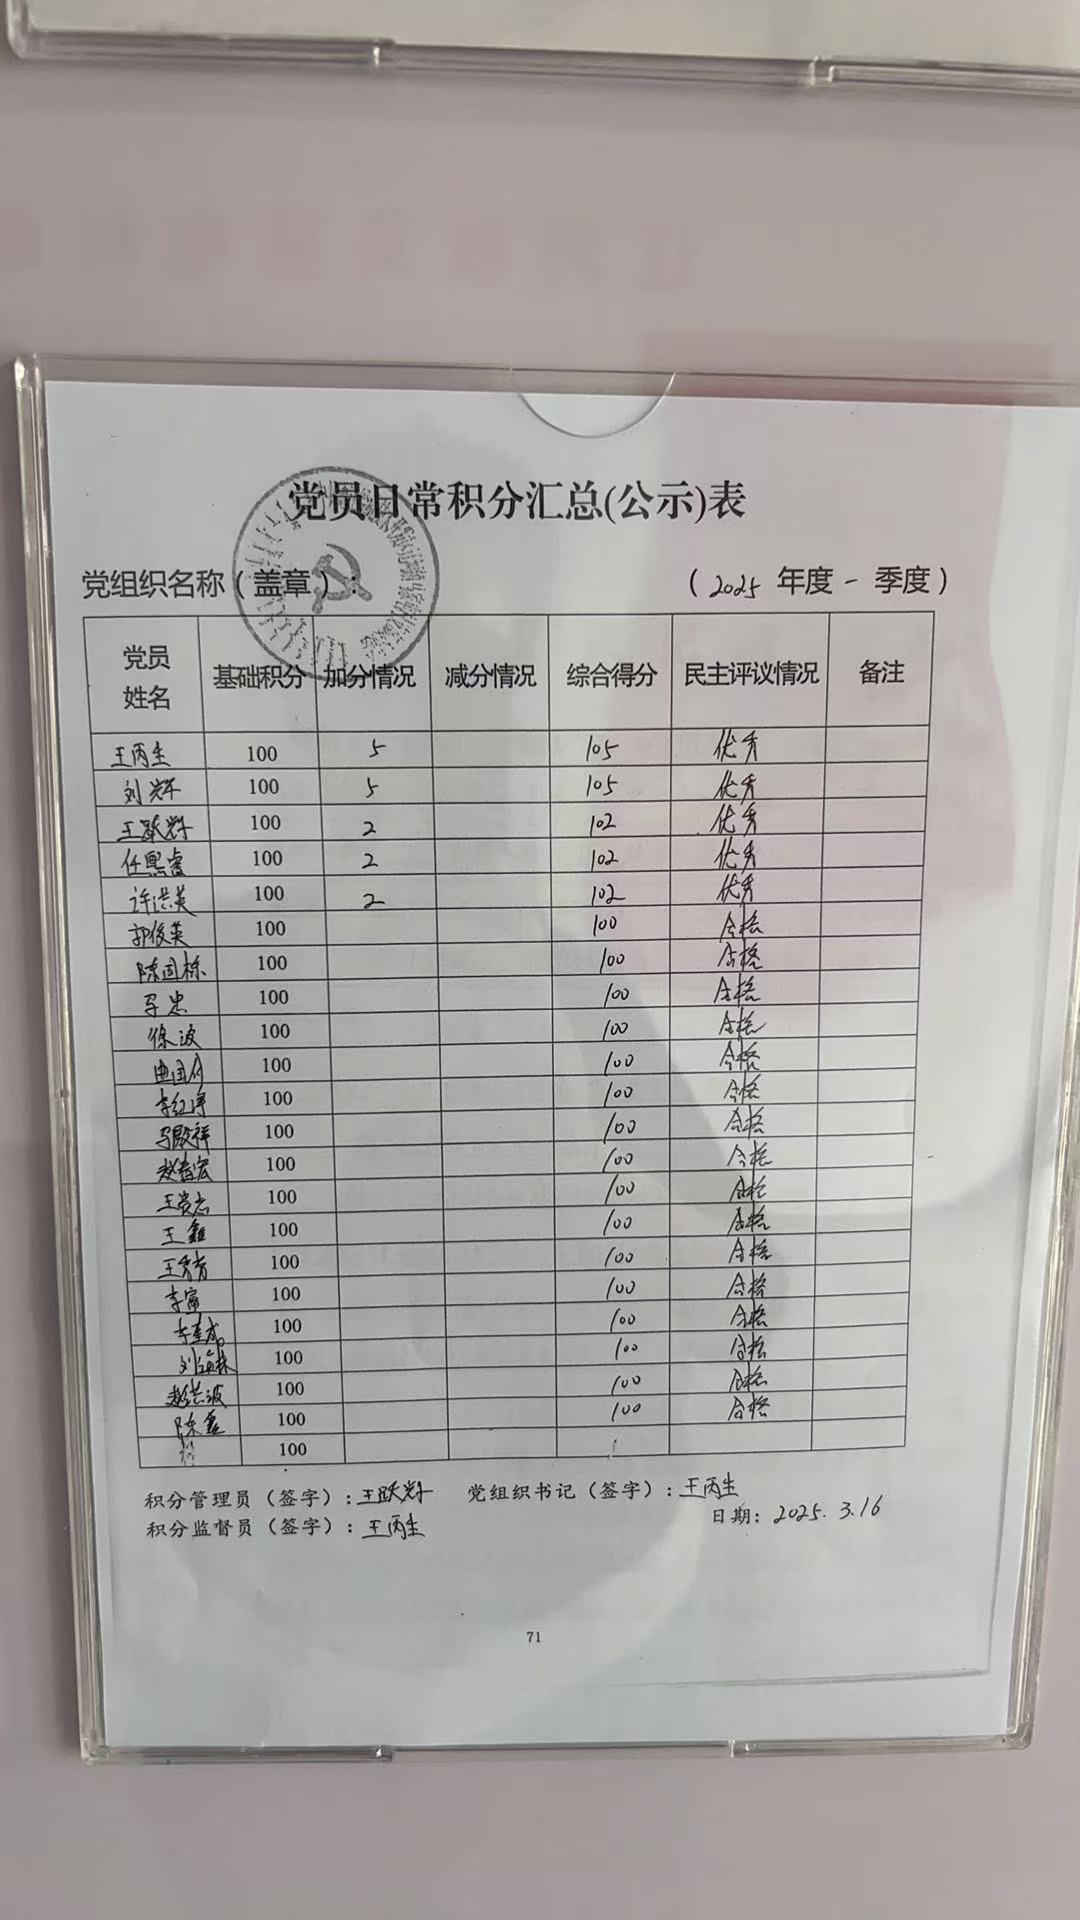 党员日常积分汇总(公示)表
党组织名称（盖章）： （2025 年度 一 季度）
党员姓名 基础积分 加分情况 减分情况 综合得分 民主评议情况 备注
王丙生 100 5 105 优秀
刘辉 100 5 105 优秀
王跃辉 100 2 102 优秀
任熙睿 100 2 102 优秀
许洪英 100 2 102 优秀
郭俊英 100 100 合格
陈国栋 100 100 合格
马忠 100 100 合格
徐波 100 100 合格
100 100 合格
100 100 合格
马殿祥 100 100 合格
赵春宏 100 100 合格
王贵志 100 100 合格
王鑫 100 100 合格
王秀 100 100 合格
李寅 100 100 合格
100 100 合格
100 100 合格
赵洪波 100 100 合格
陈鑫 100 100 合格
100
积分管理员（签字）：王跃辉 党组织书记（签字）：王丙生
积分监督员（签字）：王丙生 日期：2025. 3.16
71